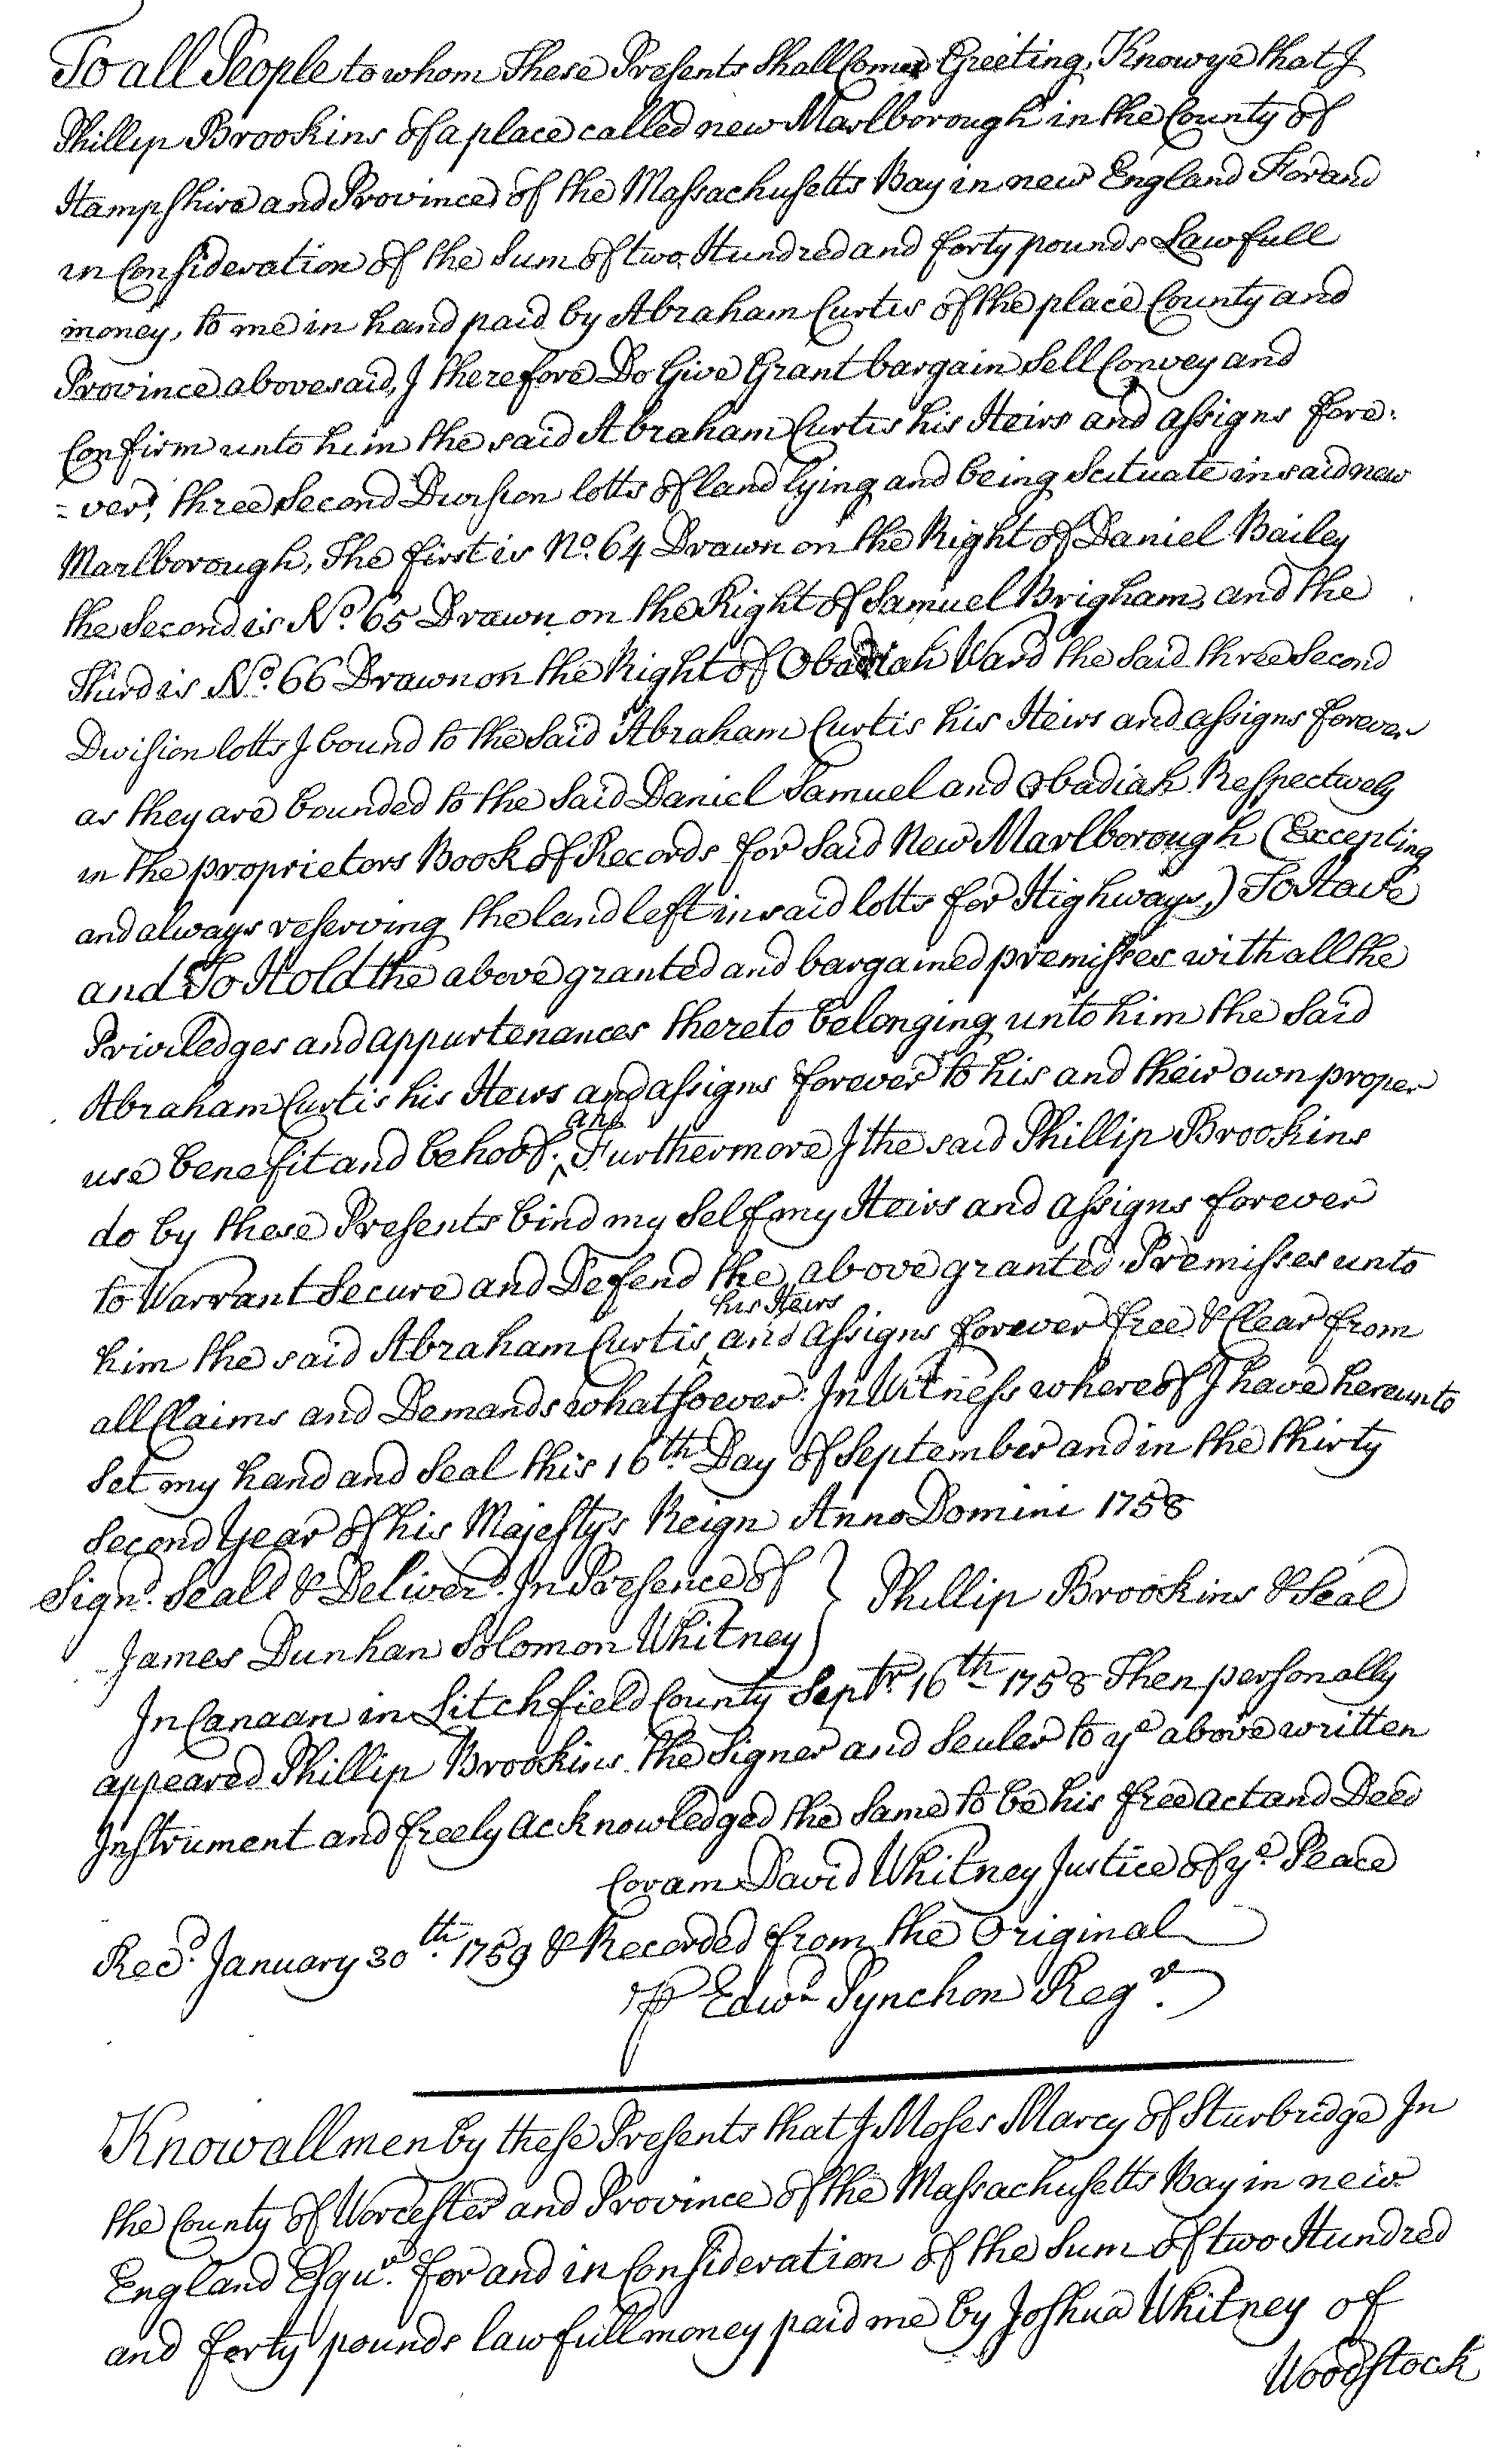 To all People to whom These Presents Shall Come Greeting, Know ye that I
Phillip Brookins of a place called new Marlborough in the County of
Hampshire and Province of the Massachusetts Bay in new England For and
in Consideration of the Sum of two Hundred and forty pounds Lawfull
money, to me in hand paid by Abraham Curtis of the place County and
Province abovesaid, I therefore Do Give Grant bargain Sell Convey and
Confirm unto him the said Abraham Curtis his Heirs and assigns fore:
=ver, three Second Division lotts of land lying and being Scituate in said new
Marlborough, The first is No. 64 Drawn on the Right of Daniel Bailey
the Second is No. 65 Drawn on the Right of Samuel Brigham, and the
Third is No. 66 Drawn on the Right of Obadiah Ward the Said three Second
Division lotts I bound to the Said Abraham Curtis his Heirs and assigns forever
as they are bounded to the Said Daniel Samuel and Obadiah Respectively
in the proprietors Book of Records for Said New Marlborough (Excepting
and always reserving the land left in said lotts for Highways,) To Have
and To Hold the above granted and bargained premisses with all the
Priviledges and appurtenances thereto belonging unto him the Said
Abraham Curtis his Heirs and assigns forever to his and their own proper
use benefit and behoof. and Furthermore I the said Phillip Brookins
do by these Presents bind my Self my Heirs and assigns forever
to Warrant Secure and Defend the above granted Premisses unto
him the said Abraham Curtis his Heirs and assigns forever free & Clear from
all Claims and Demands whatsoever: In Witness whereof I have hereunto
Set my hand and Seal this 16th. Day of September and in the thirty
Second Year of his Majestys Reign Anno Domini 1758
Signd. Seald & Deliverd. In Presence of } Phillip Brookins & Seal
James Dunhan Solomon Whitney
In Canaan in Litchfield County Septr. 16th 1758 Then personally
appeared Phillip Brookins the Signer and Sealer to ye above written
Instrument and freely acknowledged the Same to be his free act and Deed
Coram David Whitney Justice of ye. Peace
Recd. January 30th. 1759 & Recorded from the Original
⅌ Edwd Pynchon Regr.
Know all men by these Presents that I Moses Marcy of Sturbridge In
the County of Worcester and Province of the Massachusetts Bay in new
England Esqur. for and in Consideration of the Sum of two Hundred
and forty pounds lawfull money paid me by Joshua Whitney of
Woodstock